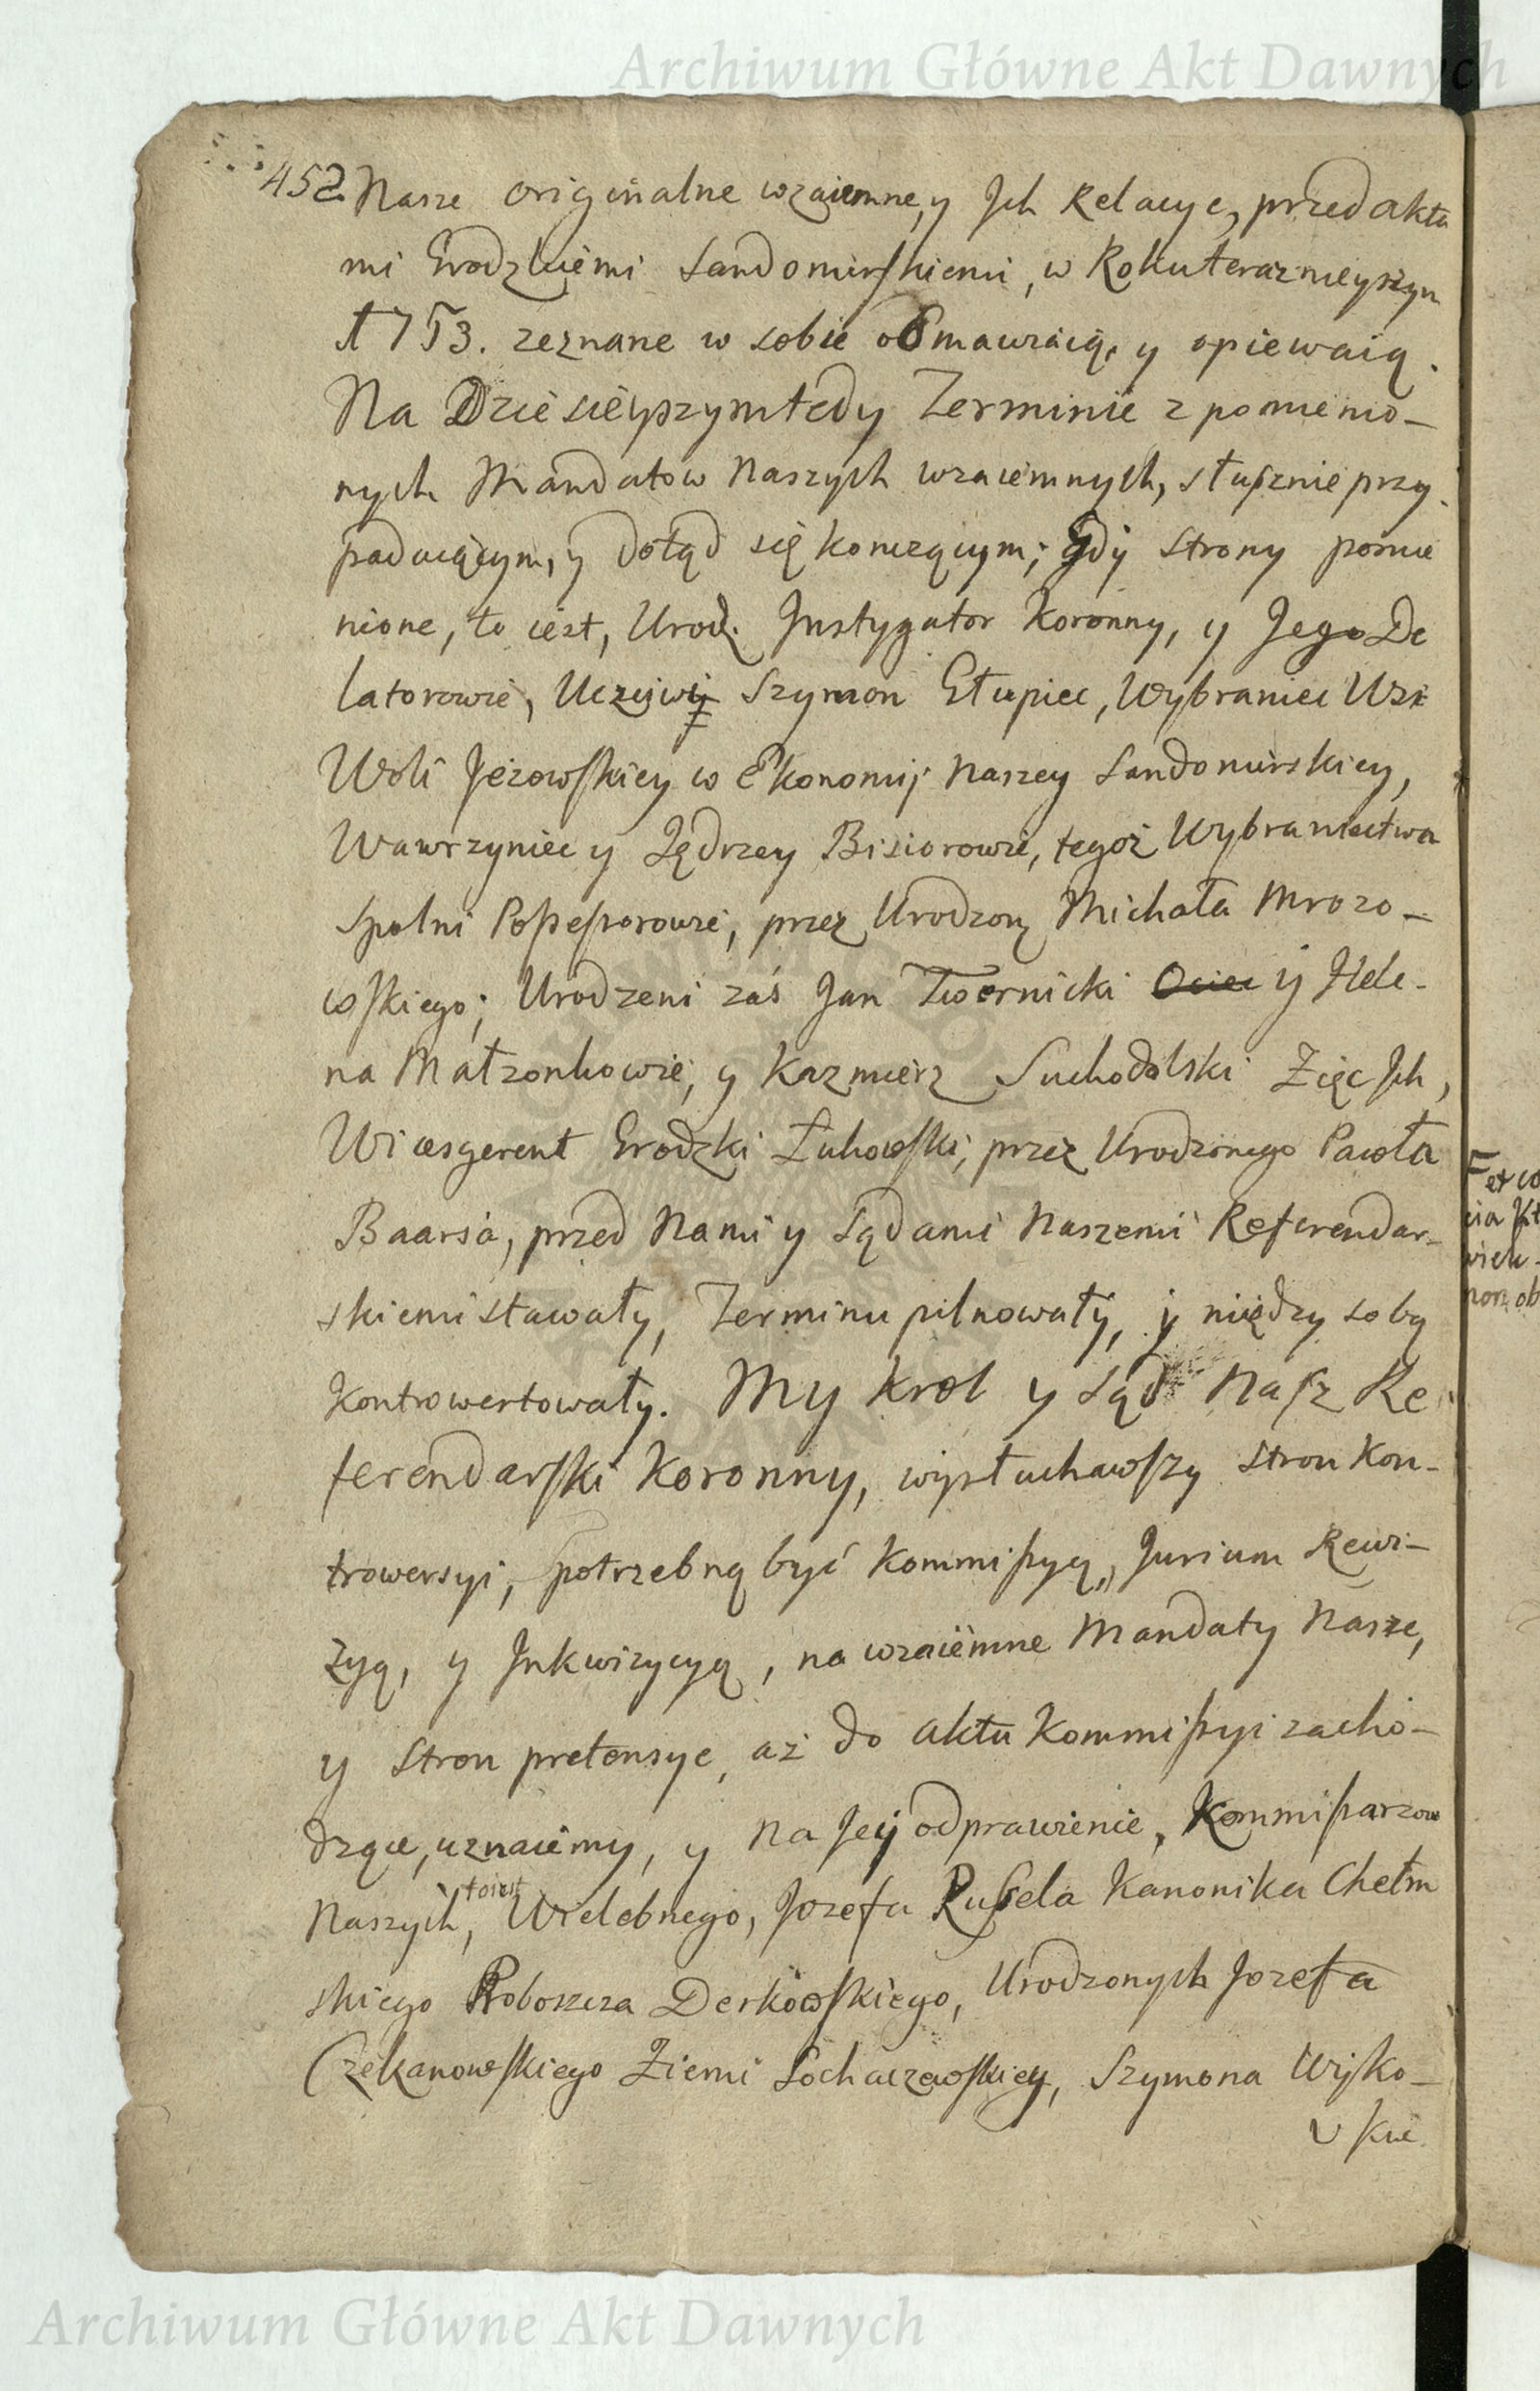 Archiwum Główne Akt Dawnych
452 Nasze originalne wzaiemne, y Jch Relacye, przed akta
mi Grodzkiemi Sandomirskiemi, w Roku teraznieyszym
1753. zeznane w sobie obmawiaią, y opiewaią.
Na Dzisieyszym tedy Terminie z pomienio-
nych Mandatow Naszych wzaiemnych, słusznie przy
padaiącym, y dotąd się konczącym; gdy strony pomie
nione, to iest, Urodz. Jnstygator Koronny, y Jego De
latorowie, Uczciwi Szymon Głupiec, Wybraniec Wsi
Woli Jeżowskiey w Ekonomij Naszey Sandomirskiey,
Wawrzyniec y Jędrzey Bisiorowie, tegoż Wybraniectwa
Spolni Possessorowie, przez Urodzon Michała Mrozo-
wskiego; Urodzeni zaś Jan Twornicki Ociec y Hele-
na Małzonkowie, y Kazmierz Suchodolski Zięc Jch,
Wicesgerent Grodzki Łukowski, przez Urodzonego Pawła
Baarsa, przed Nami y Sądami Naszemi Referendar-
skiemi stawały, Terminu pilnowały, y między sobą
kontrowertowały. My Krol y Sąd Nasz Re
ferendarski Koronny, wysłuchawszy stron kon-
trowersyi, potrzebną być Kommissyą, Jurium Rewi-
zyą, y Jnkwizycyą, na wzaiemne Mandaty Nasze,
y stron pretensye, aż do aktu Kommissyi zacho-
dzące, uznaiemy, y na Jey odprawienie, Kommissarzow
Naszych, to iest Wielebnego, Jozefa Russela Kanonika Chełm
skiego Proboszcza Derkowskiego, Urodzonych Jozefa
Czekanowskiego Ziemi Sochaczewskiey, Szymona Wysko-
wskie
et co
Archiwum Główne Akt Dawnych